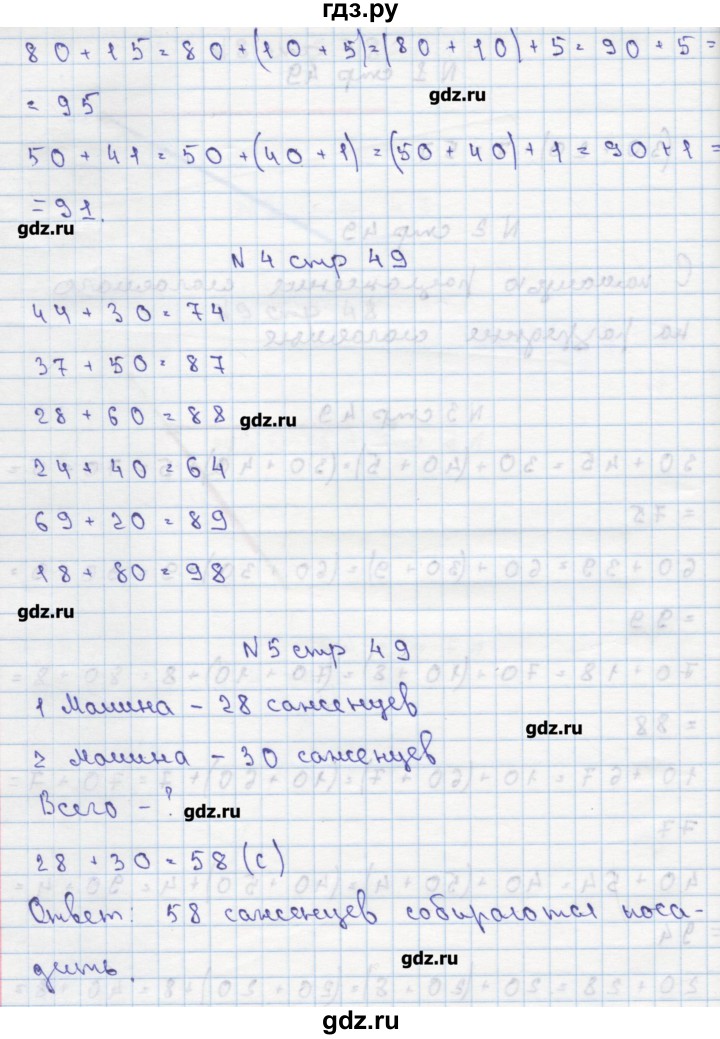 гдз.ру
80 + 15 = 80 + (10 + 5) = (80 + 10) + 5 = 90 + 5 =
gdz.ru
= 95
50 + 41 = 50 + (40 + 1) = (50 + 40) + 1 = 90 + 1 =
= 91.
gdz.ru
N 4 стр 49
44 + 30 = 74
37 + 50 = 87
28 + 60 = 88
gdz.ru
24 + 40 = 64
69 + 20 = 89
18 + 80 = 98
gdz.ru
N 5 стр 49
1 Машина – 28 саженцев
gdz.ru
2 машина – 30 саженцев
Всего – ?
gdz.ru
28 + 30 = 58 (с)
Ответ: 58 саженцев собираются поса-
дить.
gdz.ru
gdz.ru